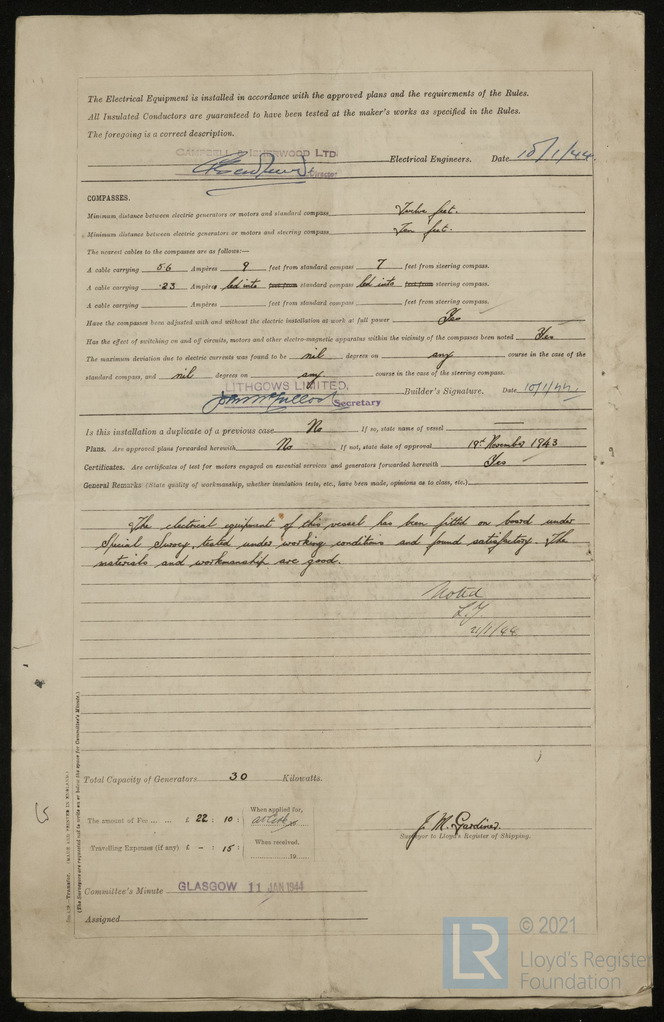 The Electrical Equipment is installed in accordance with the approved plans and the requirements of the Rules.
All Insulated Conductors are guaranteed to have been tested at the maker's works as specified in the Rules.
The foregoing is a correct description.
CAMPBELL & ISHERWOOD LTD.
Director Electrical Engineers. Date 10/1/44.
COMPASSES.
Minimum distance between electric generators or motors and standard compass Twelve feet.
Minimum distance between electric generators or motors and steering compass Ten feet.
The nearest cables to the compasses are as follows:—
A cable carrying .56 Ampères 9 feet from standard compass 7 feet from steering compass.
A cable carrying .23 Ampères led into feet from standard compass led into feet from steering compass.
A cable carrying Ampères feet from standard compass feet from steering compass.
Have the compasses been adjusted with and without the electric installation at work at full power Yes
Has the effect of switching on and off circuits, motors and other electro-magnetic apparatus within the vicinity of the compasses been noted Yes
The maximum deviation due to electric currents was found to be nil degrees on any course in the case of the
standard compass, and nil degrees on any course in the case of the steering compass.
LITHGOWS LIMITED.
John McCulloch Secretary Builder's Signature. Date 10/1/44.
Is this installation a duplicate of a previous case No If so, state name of vessel
Plans. Are approved plans forwarded herewith No If not, state date of approval 19th November 1943
Certificates. Are certificates of test for motors engaged on essential services and generators forwarded herewith Yes
General Remarks (State quality of workmanship, whether insulation tests, etc., have been made, opinions as to class, etc.)
The electrical equipment of this vessel has been fitted on board under
Special Survey, tested under working conditions and found satisfactory. The
materials and workmanship are good.
Noted
21/1/44
Total Capacity of Generators 30 Kilowatts.
The amount of Fee ... ... £ 22 : 10 :
When applied for,
Travelling Expenses (if any) £ - : 15 :
When received,
19
J. M. Gardiner
Surveyor to Lloyd's Register of Shipping.
Committee's Minute GLASGOW 11 JAN 1944
Assigned
Transfer. (MADE AND PRINTED IN ENGLAND.)
(The Surveyors are requested not to write on or below the space for Committee's Minute.)
LR
© 2021
Lloyd's Register
Foundation